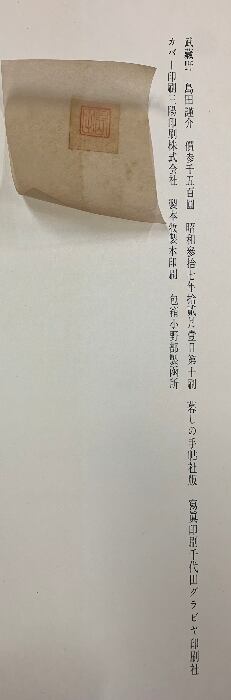 武蔵野　島田謹介　價参千五百圓　昭和参拾七年拾貳月壹日第十刷　暮しの手帖社版　寫眞印刷千代田グラビヤ印刷社
カバー印刷三陽印刷株式会社　製本牧製本印刷　包箱小野部製函所